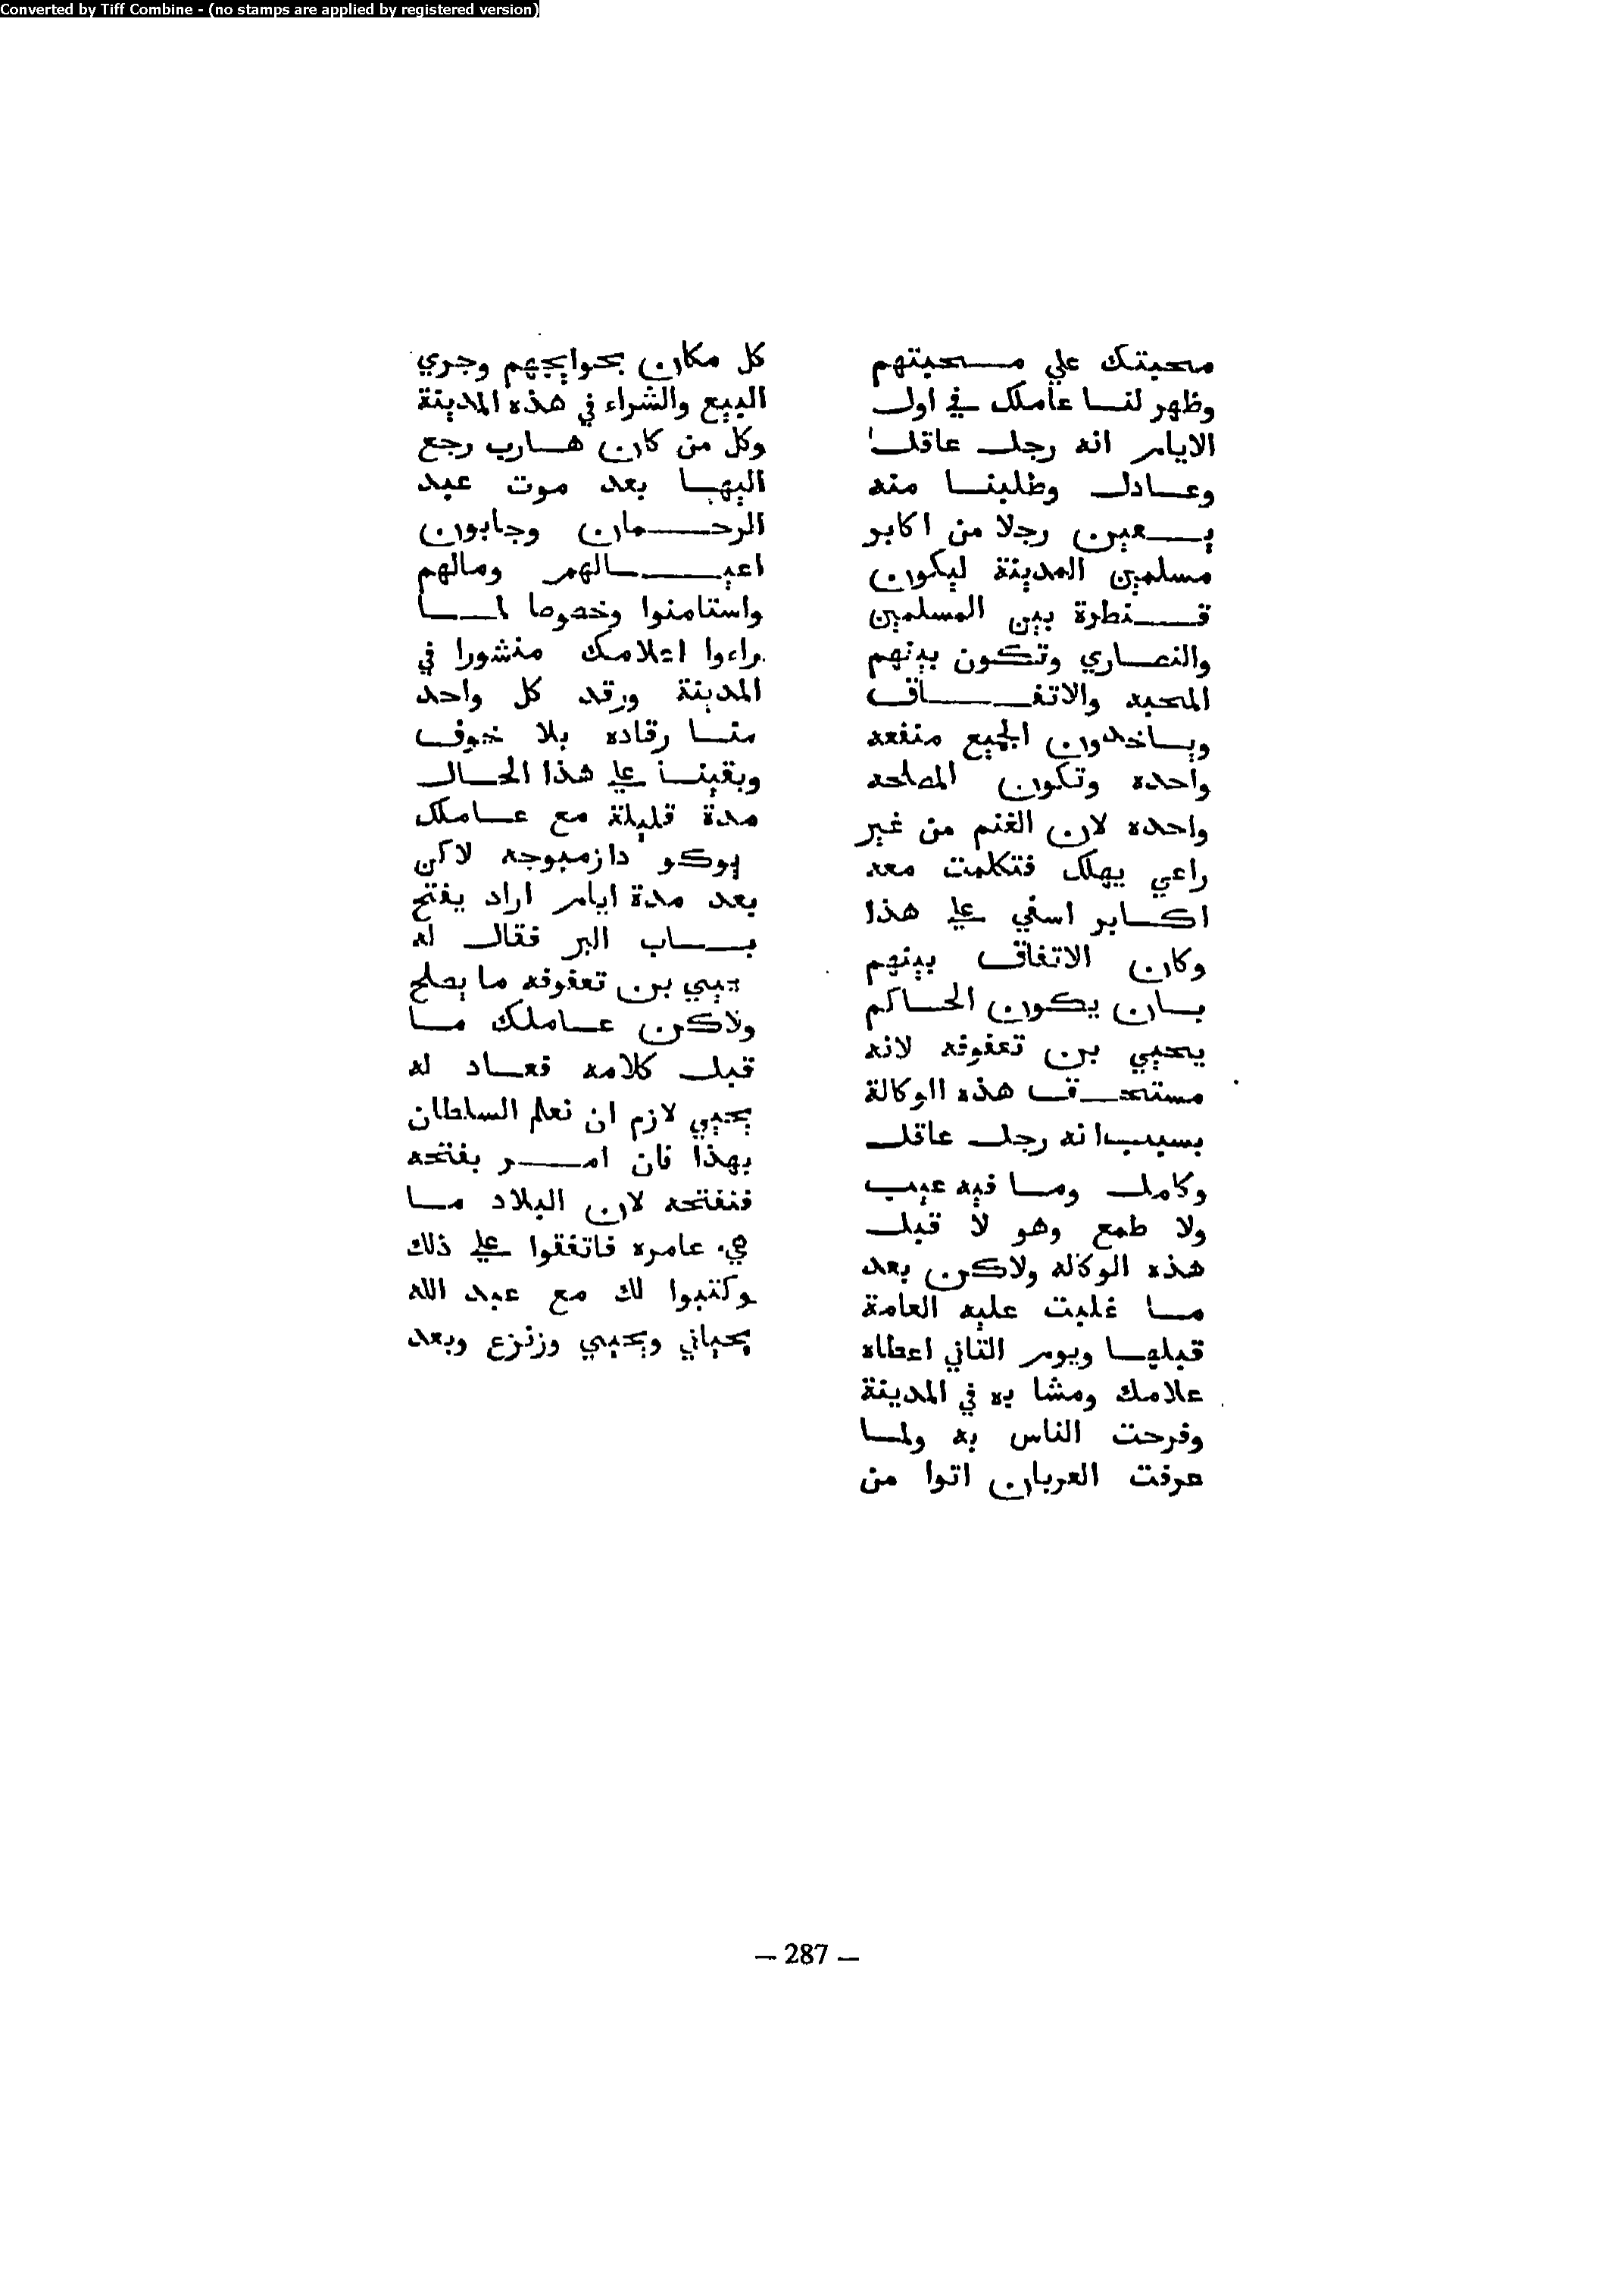 Converted by Tiff Combine - (no stamps are applied by registered version)
محبتك علي محبتهم
وظهر لنا عاملك في اول
الايام انه رجل عاقل
وعادل وطلبنا منه
يعين رجلا من اكابر
مسلمين المدينة ليكون
قنطرة بين المسلمين
والنصاري وتكون بينهم
المحبه والاتفاق
وياخدون الجميع منفعه
واحده وتكون المصلحه
واحده لان الغنم من غير
راعي يهلك فتكلمت معه
اكابر اسفي علي هذا
وكان الاتفاق بينهم
بان يكون الحاكم
يحيي بن تعفوفه لانه
مستحق هذه الوكالة
بسبب انه رجل عاقل
وكامل وما فيه عيب
ولا طمع وهو لا قبل
هذه الوكاله ولاكن بعد
ما غلبت عليه العامة
قبلها ويوم الثاني اعطاه
علامك ومشا به في المدينة
وفرحت الناس به ولما
عرفت العربان اتوا من
كل مكان بحوايجهم وجري
البيع والشراء في هذه المدينة
وكل من كان هارب رجع
اليها بعد موت عبد
الرحمان وجابون
اعيالهم ومالهم
واستامنوا وخصوصا لما
راءوا اعلامك منشورا في
المدينة ورقد كل واحد
منا رقاده بلا خوف
وبقينا علي هذا الحال
مدة قليلة مع عاملك
يوكو دازمبوجه لاكن
بعد مدة ايام اراد يفتح
باب البر فقال له
يحيي بن تعفوفه ما يصلح
ولاكن عاملك ما
قبل كلامه فعاد له
يحيي لازم ان نعلم السلطان
بهذا فان امر بفتحه
فنفتحه لان البلاد ما
هي عامره فاتفقوا علي ذلك
وكتبوا لك مع عبد الله
يحياني ويحيي وزنزع وبعد
— 287 —